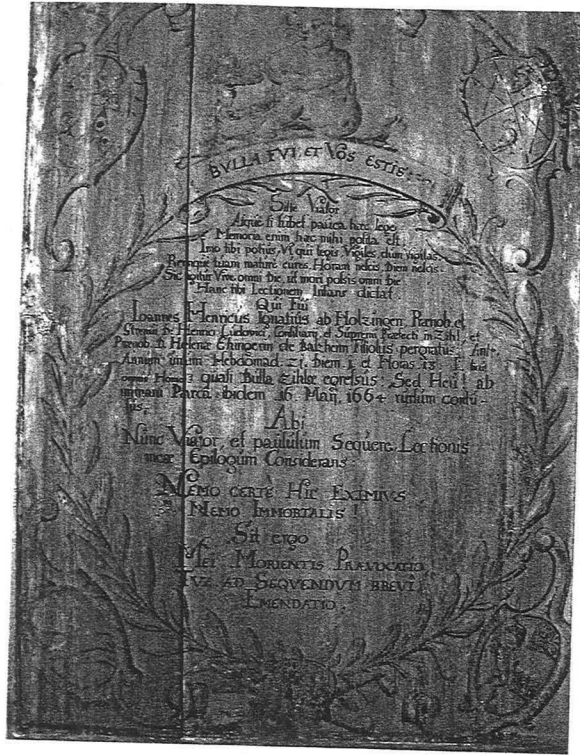 BVLLA FVI ET VOS ESTIS
Siste Viator
Atque si lubet pauca hæc lege
Memoria enim hæc mihi posita est
Imo tibi potius, Vt qui legis Vigiles dum vigilas
Remque tuam mature cures. Horam nescis, Diem nescis
Sic igitur Vive omni Die, ut mori possis omni Die
Hanc tibi Lectionem Infans dictat
Qui Fui
Ioannes Henricus Ignatius ab Holzingen Prænob. et
Strenui D. Henrici Ludovici, Consiliarij et Supremi Præfecti in Zihl, et
Prænob. D. Helenæ Ehingerin de Balzheim Filiolus pergratus;
Annum unum Hebdomad. 21. Diem 1. et Horas 13.
quasi Bulla Zihlæ egressus. Sed Heu! ab
Parca ibidem 16 Maij, 1664 rursum
Abi
Nunc Viator, et paululum Sequere, Lectionis
meæ Epilogum Considerans.
NEMO CERTÈ HIC EXIMIVS
NEMO IMMORTALIS!
Sit ergo
MEI MORIENTIS PRÆVOCATIO
TVÆ AD SEQVENDVM BREVI
EMENDATIO.